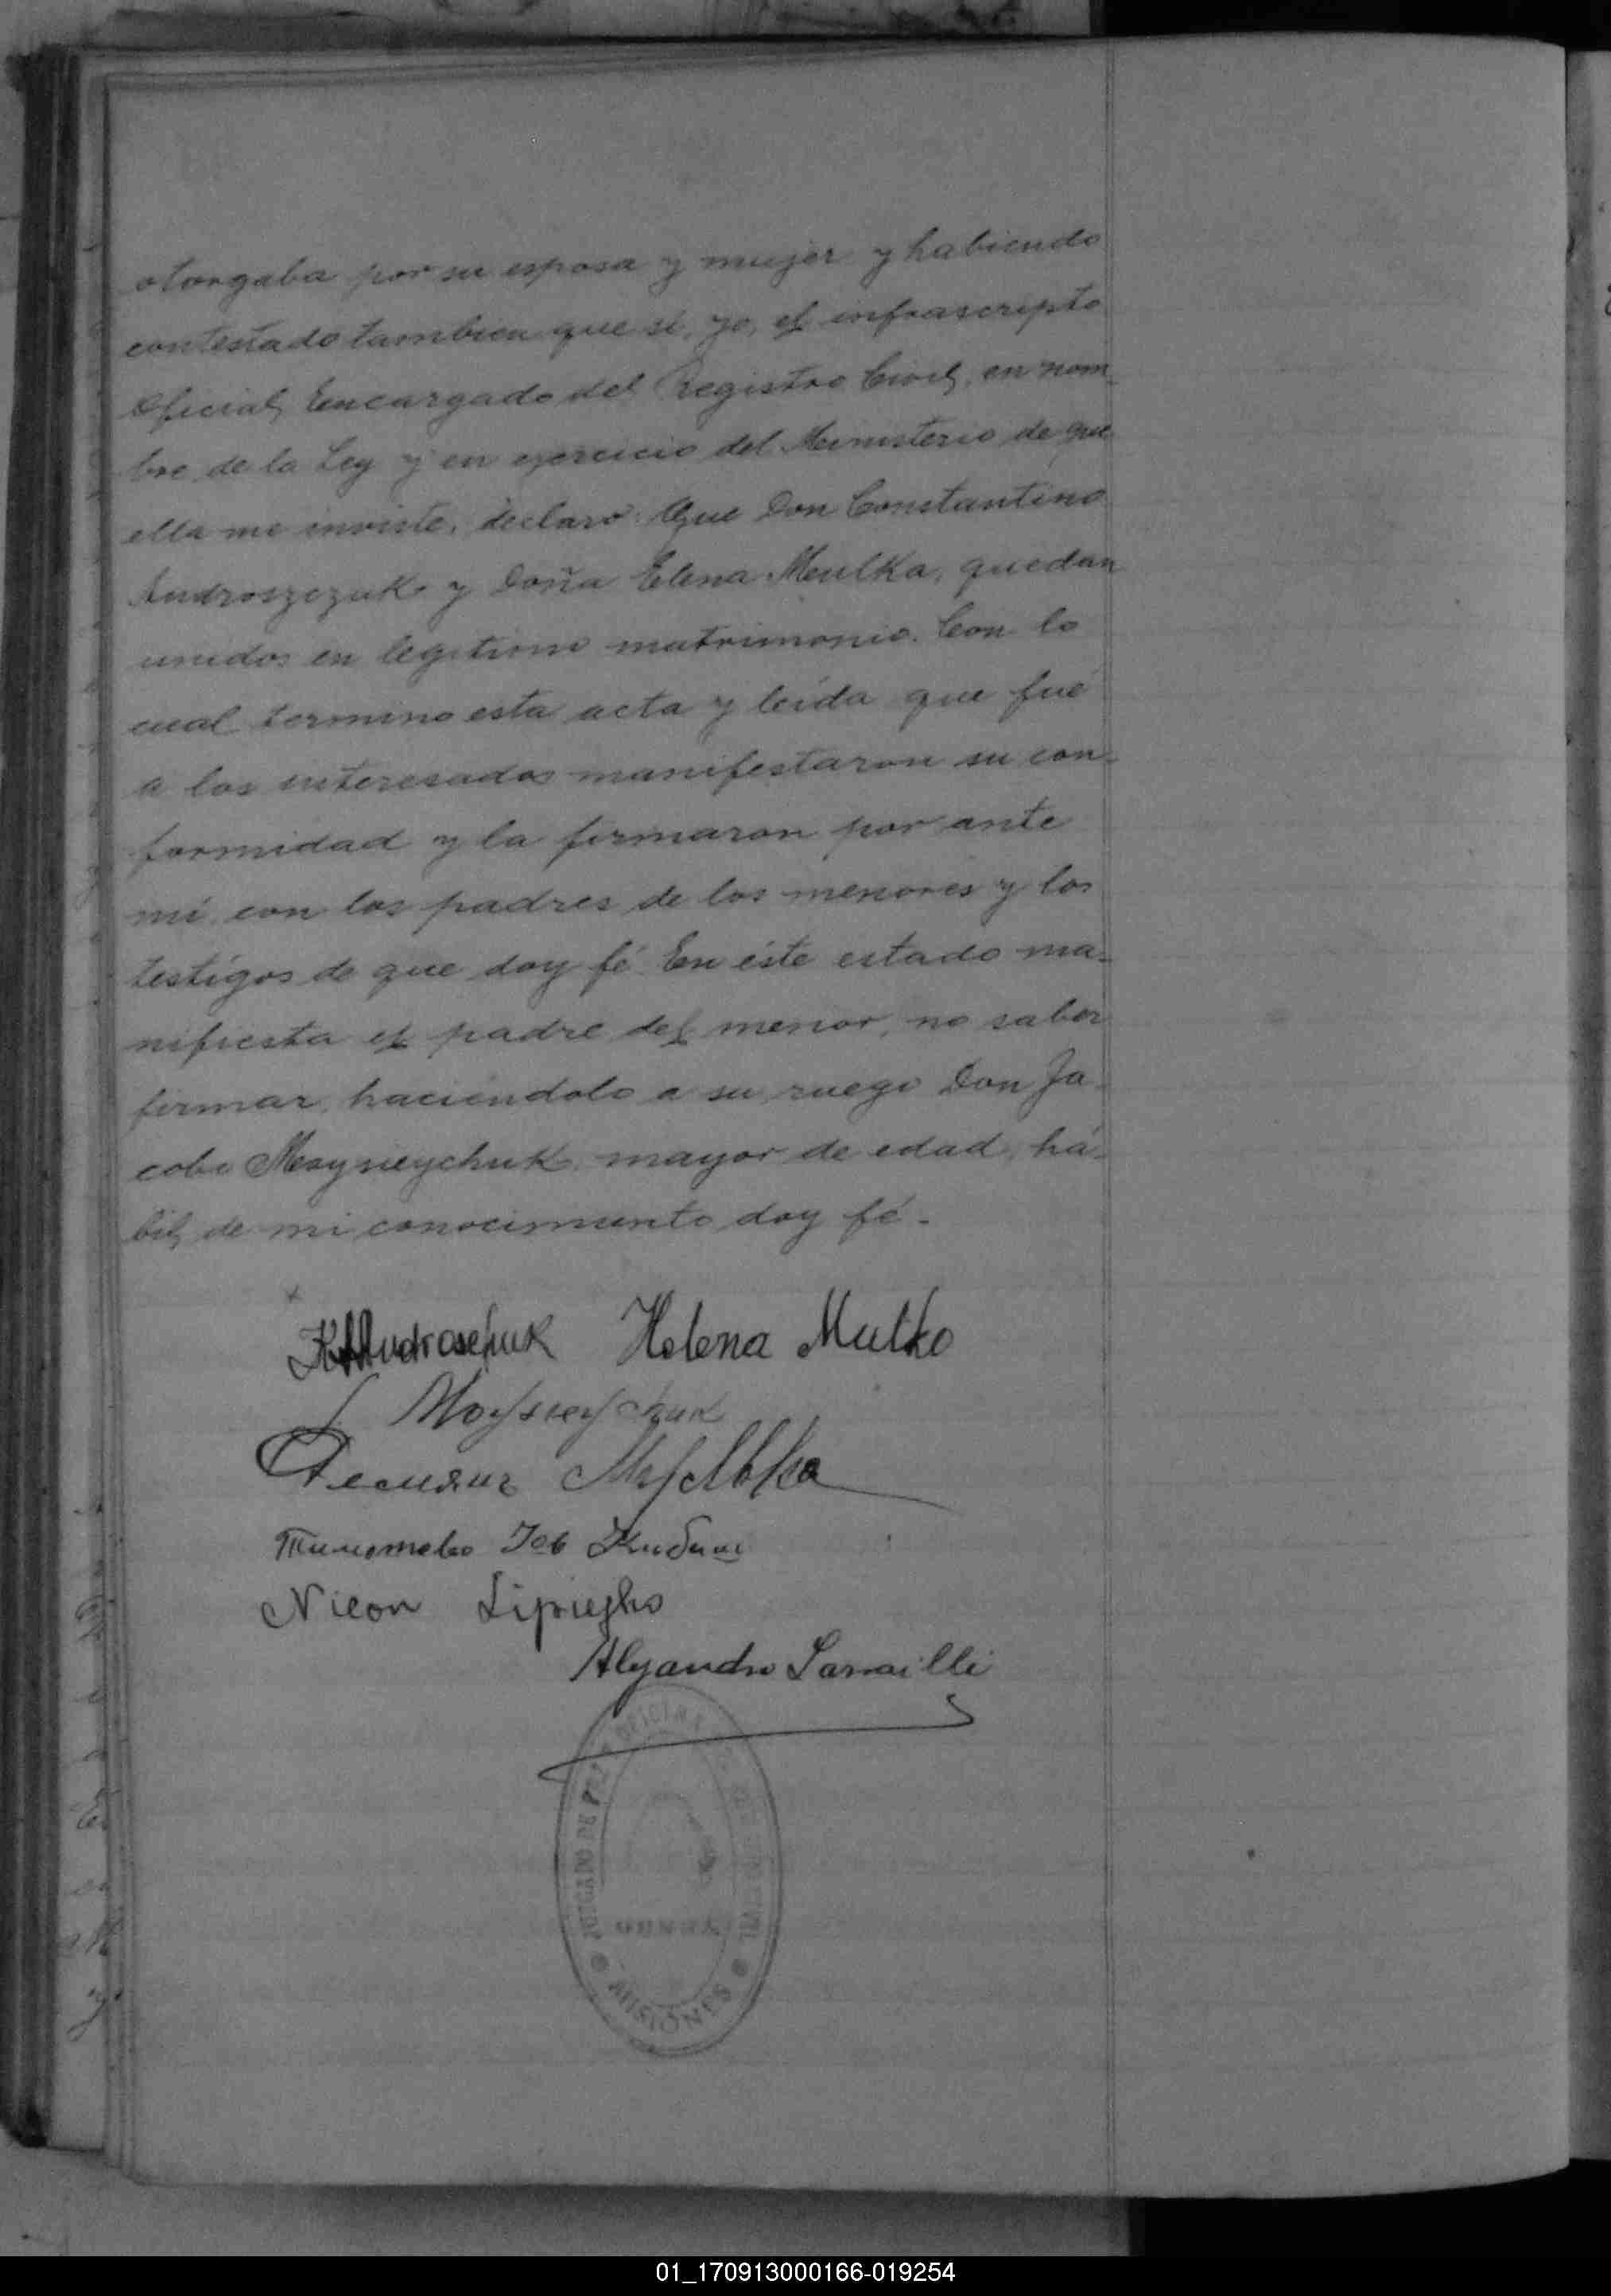 otorgaba por su esposa y mujer y habiendo
contestado tambien que sí, yo, el infrascripto
Oficial Encargado del Registro Civil, en nom-
bre de la Ley y en ejercicio del Ministerio de que
ella me inviste, declaro: Que Don Constantino
Androszczuk y Doña Elena Mulka, quedan
unidos en legitimo matrimonio. Con lo
cual termino esta acta y leída que fué
a los interesados manifestaron su con-
formidad y la firmaron por ante
mí con los padres de los menores y los
testigos de que doy fé. En éste estado ma-
nifiesta el padre del menor, no saber
firmar, haciendolo a su ruego Don Ja-
cobo Moysieychuk, mayor de edad, há-
bil, de mi conocimiento doy fé.-
K Androschuk Helena Mulko
J Moysieychuk
Мулька
Nicon
Alejandro
JUZGADO DE PAZ OFICINA CIVIL
MISIONES
01_170913000166-019254